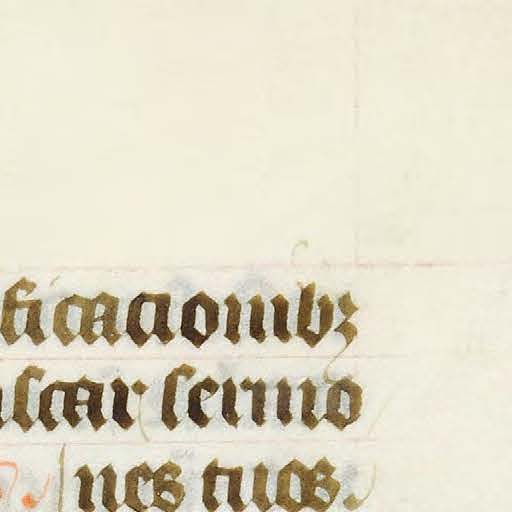 ficacionibꝫ
iscar sermo
nes tuos.